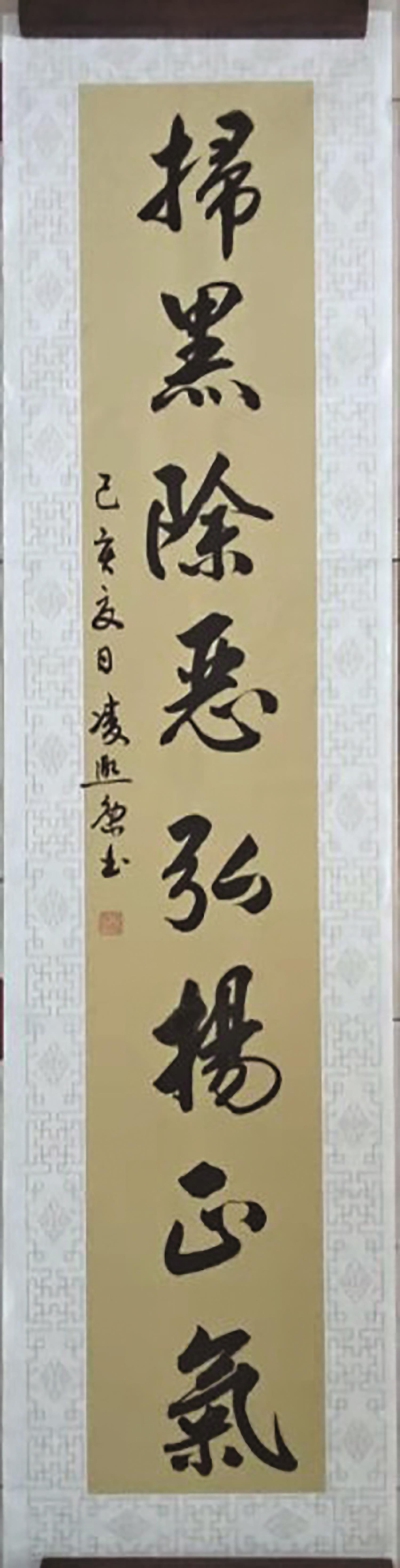 掃黑除惡弘揚正氣
己亥夏日凌熙黎书